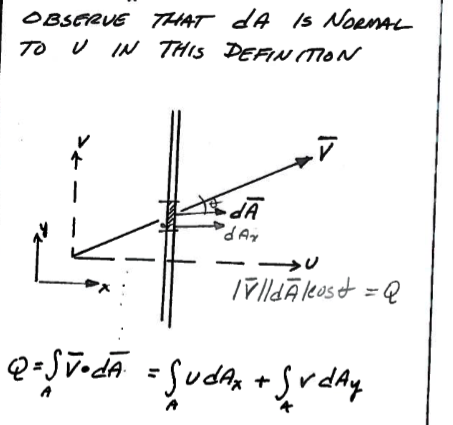 OBSERVE THAT dA IS NORMAL
TO U IN THIS DEFINITION
V
V̅
θ
dA̅
dAₓ
y
x
U
|V̅||dA̅|cosθ = Q
Q = ∫_A V̅•dA̅ = ∫_A U dAₓ + ∫_A V dA_y